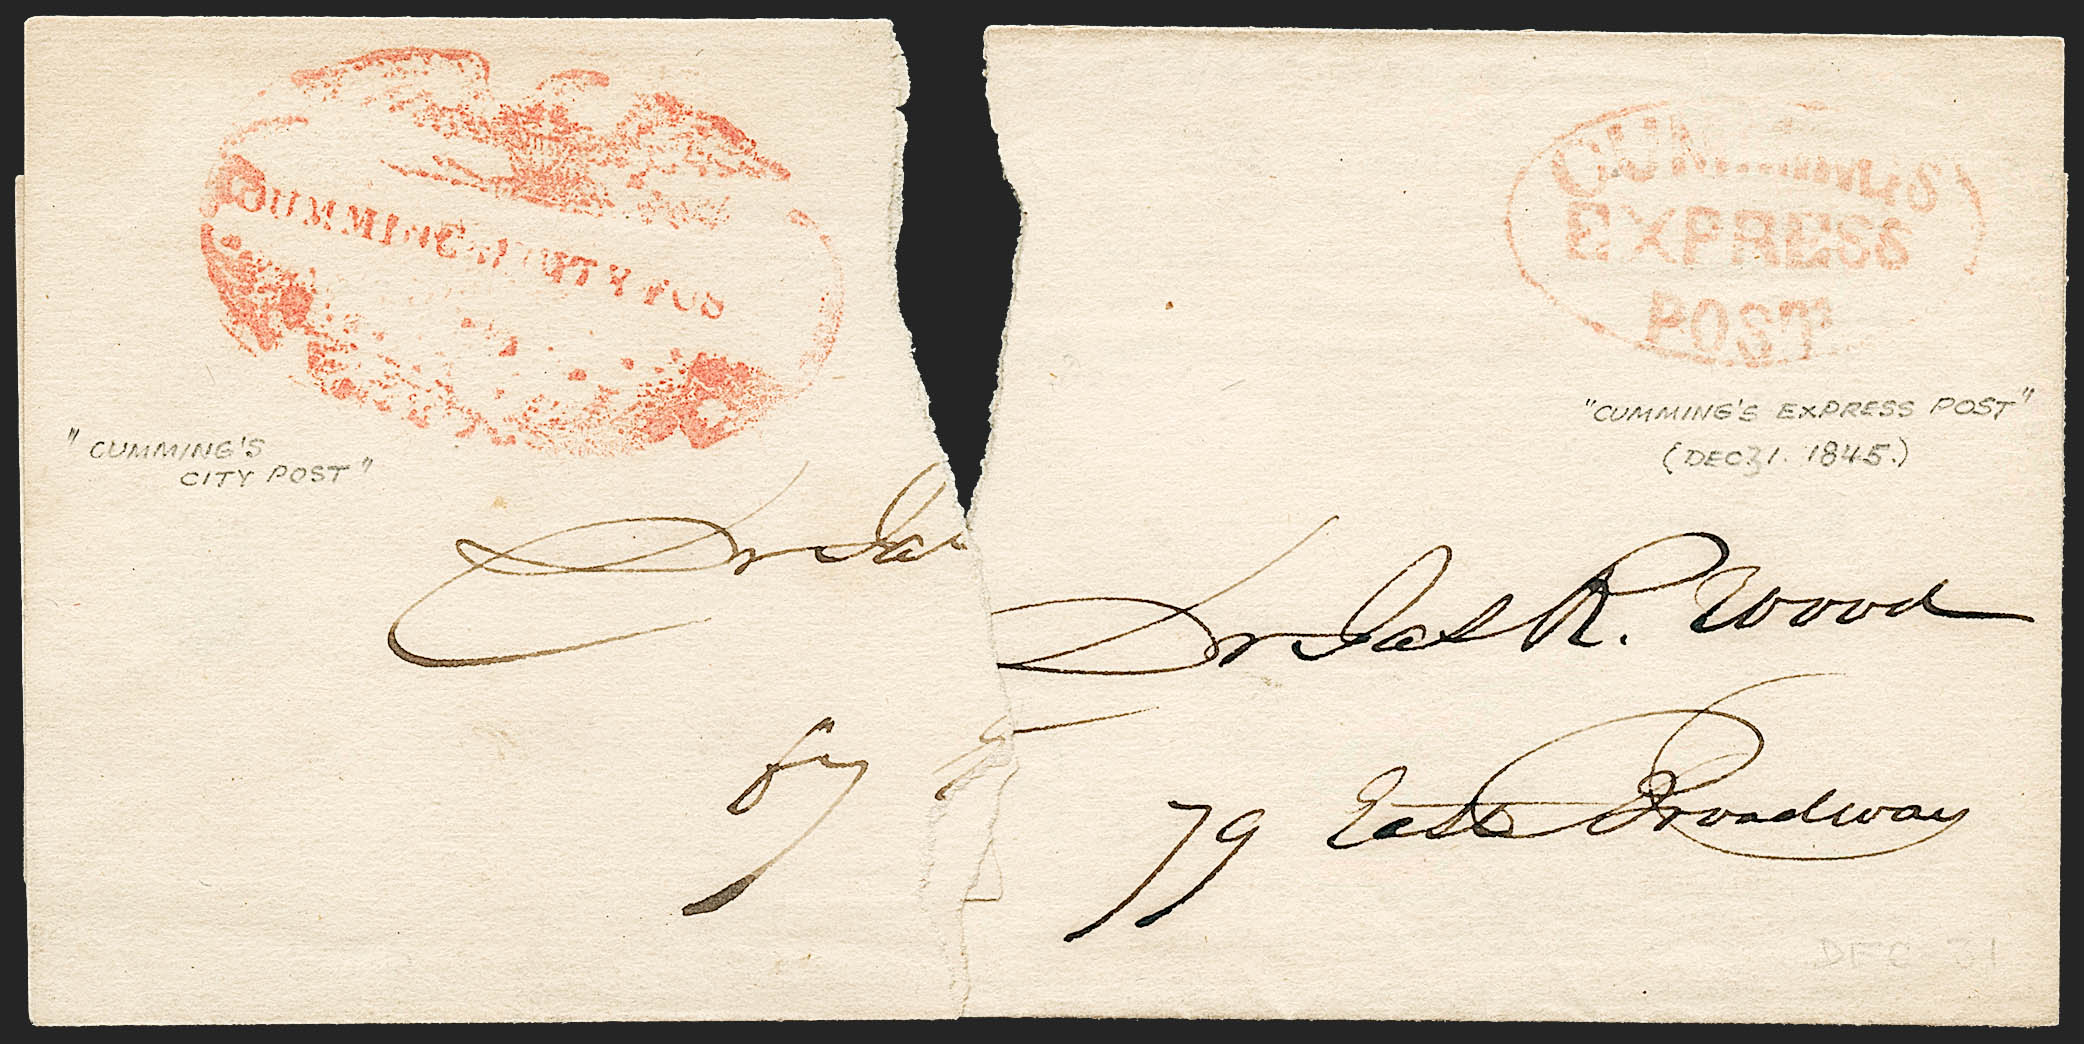 CUMMING'S CITY POS
"CUMMING'S
CITY POST"
Dr Ja
67
CUMMING'S
EXPRESS
POST
"CUMMING'S EXPRESS POST"
(DEC 31. 1845.)
Dr Jas R. Wood
79 East Broadway
DEC 31